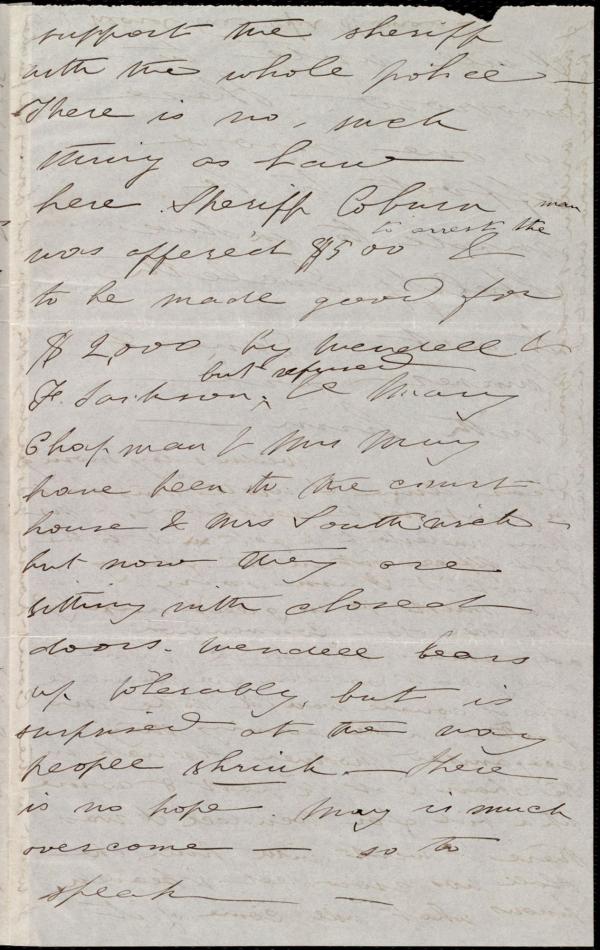 support the sheriff
with the whole police —
There is no, such
thing as Law
here. Sheriff Coburn
was offered $500 to arrest the man &
to be made good for
$2,000 by Wendell &
F. Jackson, but refused & Mary
Chapman & Mrs May
have been to the court
house & Mrs Southwick —
but now they are
sitting with closed
doors. Wendell bears
up tolerably, but is
surprised at the way
people shrink — there
is no hope. May is much
overcome — so to
speak — —